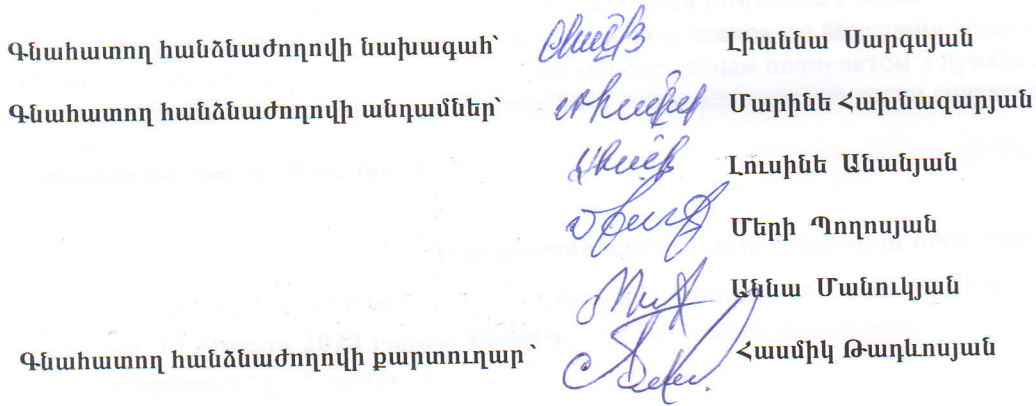 Գնահատող հանձնաժողովի նախագահ՝ Լիաննա Սարգսյան
Գնահատող հանձնաժողովի անդամներ՝ Մարինե Հախնազարյան
Լուսինե Անանյան
Մերի Պողոսյան
Աննա Մանուկյան
Գնահատող հանձնաժողովի քարտուղար՝ Հասմիկ Թադևոսյան